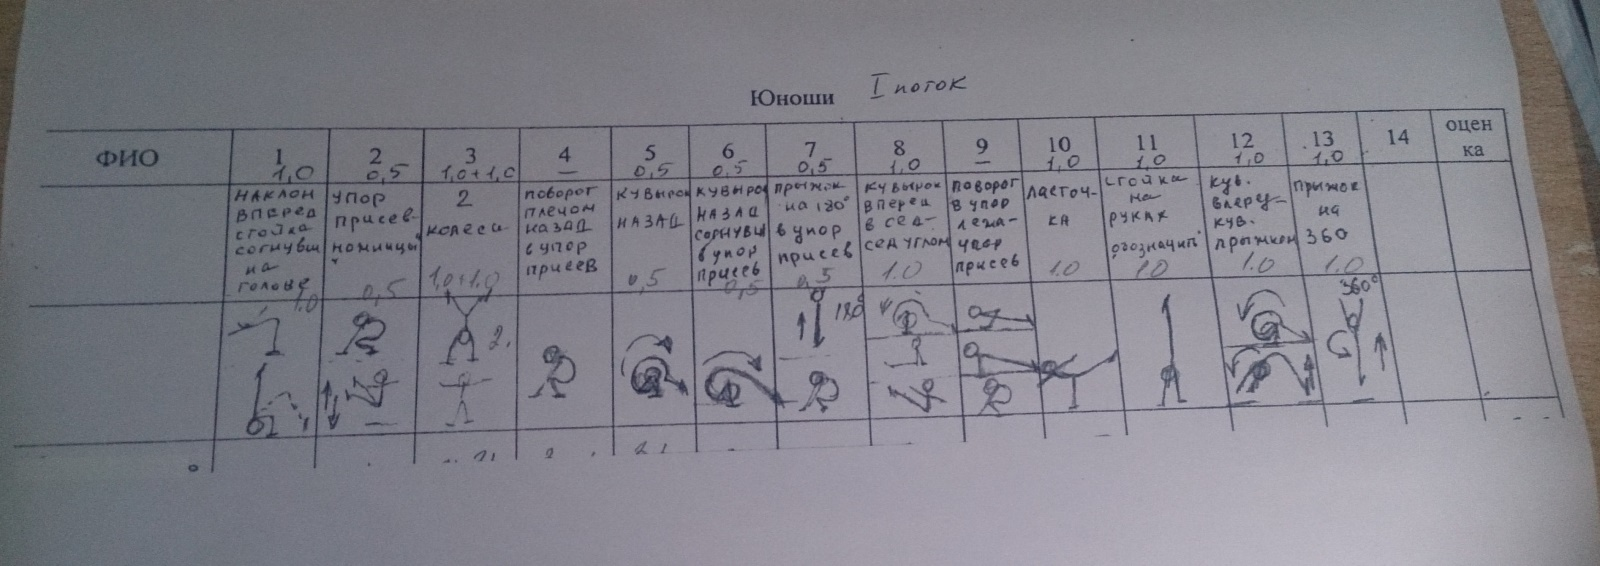 Юноши I поток
ФИО 1 2 3 4 5 6 7 8 9 10 11 12 13 14 оцен
ка
1,0 0,5 1,0+1,0 — 0,5 0,5 0,5 1,0 — 1,0 1,0 1,0 1,0
наклон
вперед
стойка
согнувш
на
голове
1.0
упор
присев-
ножницы"
0,5
2
колеса
1,0+1.0
поворот
плечом
назад
в упор
присев
кувырок
назад
0,5
кувыро
назад
согнувш
в упор
присев
0,5
прыжок
на 180°
в упор
присев
0,5
кувырок
вперед
в сед-
сед углом
1.0
поворот
в упор
лежа-
упор
присев
ласточ-
ка
1.0
стойка
на
руках
"обозначить"
1.0
кув.
вперед-
кув.
прыжком
1.0
прыжок
на
360
1.0
2.
180°
360°